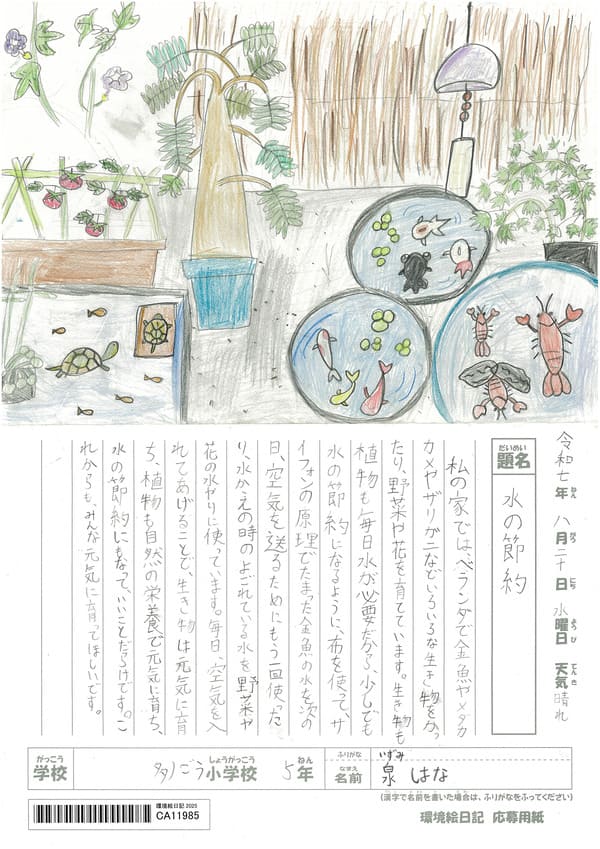 令和七年 八月二十日 水曜日 天気 晴れ
ねん がつ にち ようび てんき
だいめい
題名
水の節約
私の家では、ベランダで金魚やメダカ
カメやザリガニなどいろいろな生き物をかっ
たり、野菜や花を育てています。生き物も
植物も毎日水が必要だから、少しでも
水の節約になるように、布を使って、サ
イフォンの原理でたまった金魚の水を次の
日、空気を送るためにもう一回使った
り、水かえの時のよごれている水を野菜や
花の水やりに使っています。毎日、空気を入
れてあげることで、生き物は元気に育
ち、植物も自然の栄養で元気に育ち、
水の節約にもなって、いいことだらけです。こ
れからも、みんな元気に育ってほしいです。
がっこう しょうがっこう ねん ふりがな いずみ
学校 小学校 5年
なまえ
名前 泉 はな
(漢字で名前を書いた場合は、ふりがなをふってください)
環境絵日記 2025
CA11985
環境絵日記 応募用紙